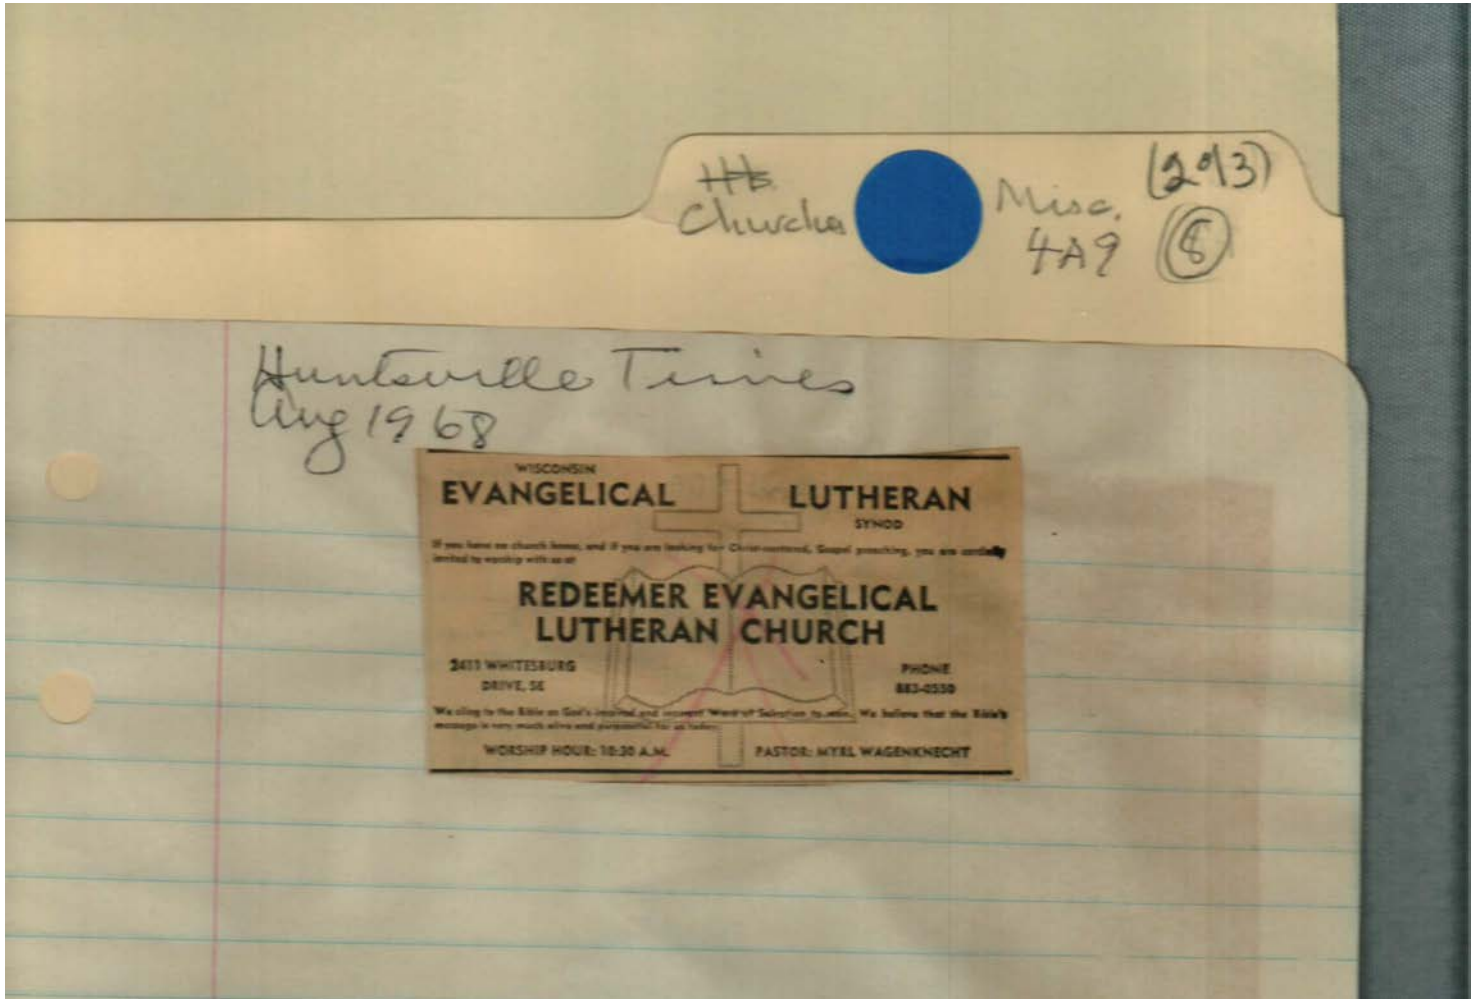 Churches
Misc.
(2 of 3)
4A9
8
Huntsville Times
Aug 1968
WISCONSIN
EVANGELICAL LUTHERAN
SYNOD
If you have no church home, and if you are looking for Christ-centered, Gospel preaching, you are cordially
invited to worship with us at
REDEEMER EVANGELICAL
LUTHERAN CHURCH
WHITESBURG
DRIVE, SE
PHONE
883-0550
We cling to the Bible as God's inspired and inerrant Word of Salvation to man. We believe that the Bible's
message is very much alive and purposeful for us today.
WORSHIP HOUR: 10:30 A.M. PASTOR: MYRL WAGENKNECHT